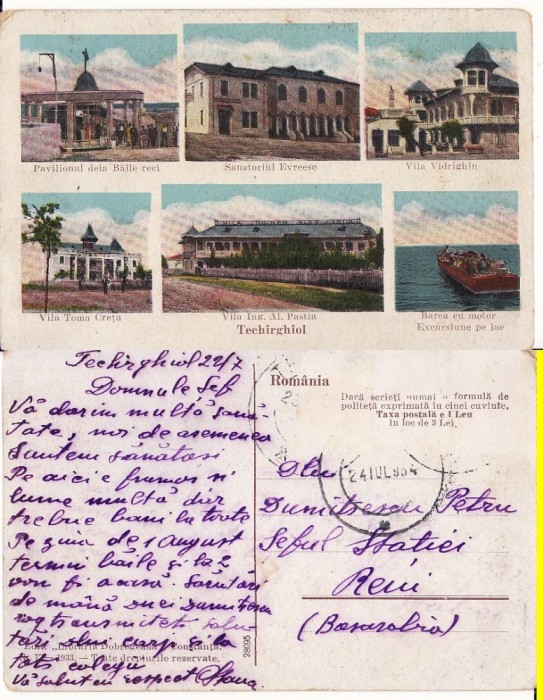 Pavilionul dela Băile reci
Sanatoriul Evreesc
Vila Vidrighin
Vila Toma Crețu
Vila Ing. Al. Pastia
Barca cu motor
Excursiune pe lac
Techirghiol
Techirghiol 22/7
Domnule Șef
Vă dorim multă sănă-
tate, noi de asemenea
suntem sănătoși
Pe aici e frumos și
lume multă dar
trebue bani la toate
Pe ziua de 1 August
termin băile și la 2
vom fi acasă. Sărutări
de mână Dnei Dumitrescu
rog transmiteți salu-
tări dlui și la
toți colegii
Vă salut cu respect
România
Dacă scrieți numai o formulă de
politeță exprimată în cinci cuvinte,
Taxa poștală e 1 Leu
în loc de 3 Lei.
24 IUL 934
Dlui
Dumitrescu Petru
Șeful Stației
Reni
(Basarabia)
Edit. „Librăria Dobrogeana" Constanța.
1933. — Toate drepturile rezervate.
28095